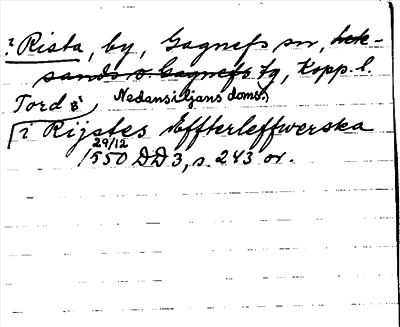 ? Rista, by, Gagnefs sn, Lek-
sands o. Gagnefs tg, Kopp. l.
Tord i Nedansiljans doms.
i Rijstes Effterleffwerska
29/12
1550 DD3, s. 243 or.